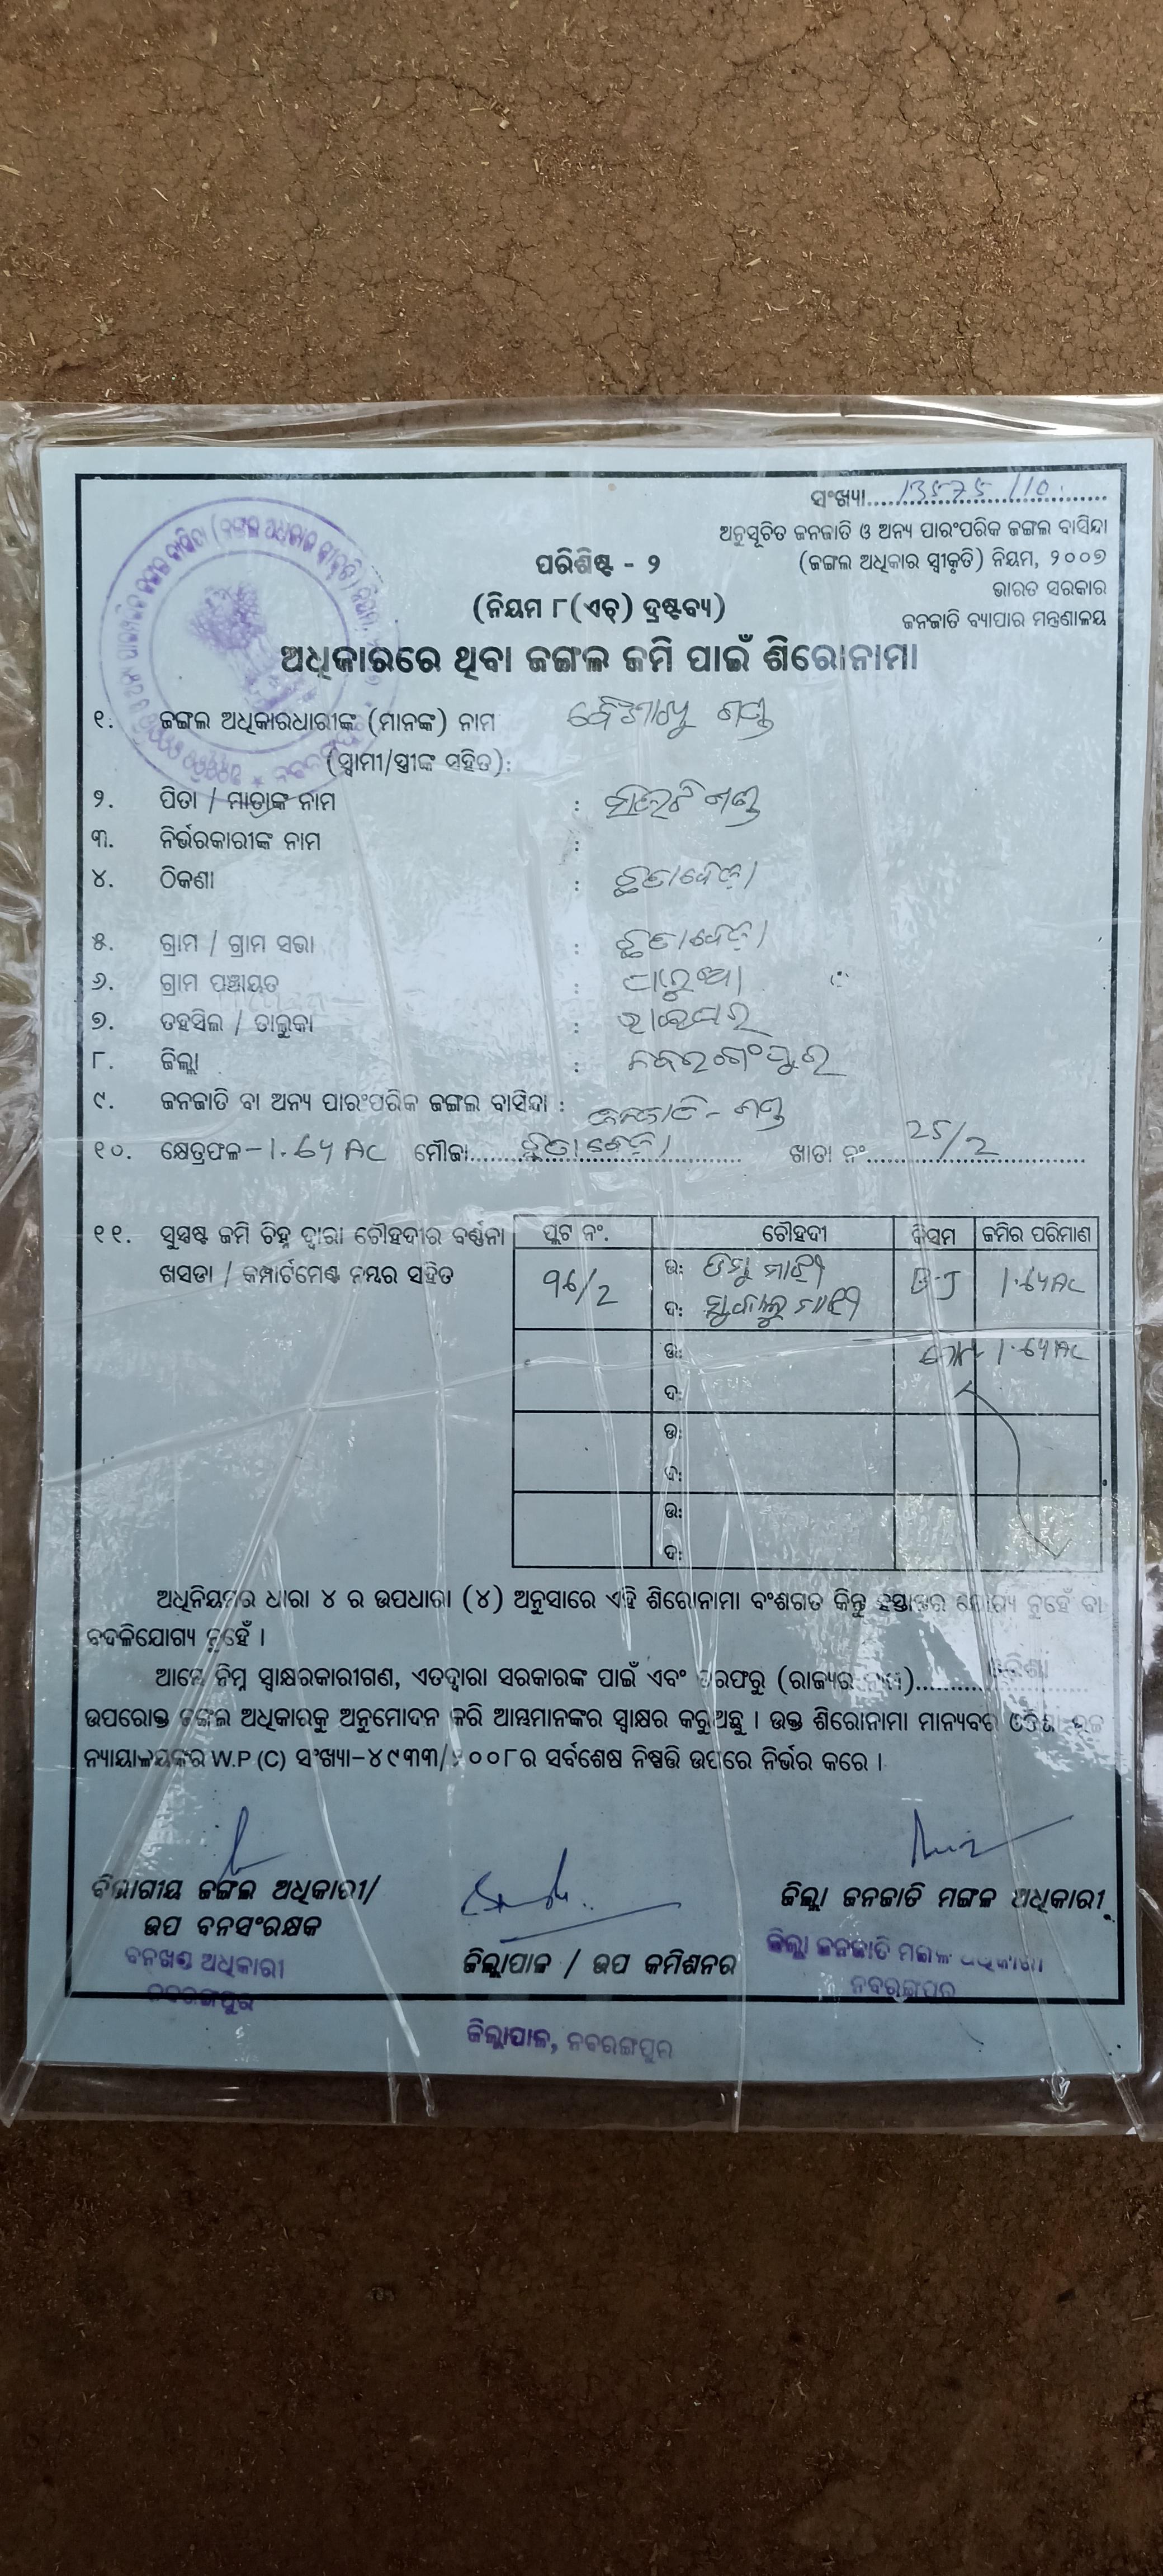 ସଂଖ୍ୟା.......................
ଅନୁସୂଚିତ ଜନଜାତି ଓ ଅନ୍ୟ ପାରଂପରିକ ଜଙ୍ଗଲ ବାସିନ୍ଦା
(ଜଙ୍ଗଲ ଅଧିକାର ସ୍ୱୀକୃତି) ନିୟମ, ୨୦୦୭
ଭାରତ ସରକାର
ଜନଜାତି ବ୍ୟାପାର ମନ୍ତ୍ରଣାଳୟ
ପରିଶିଷ୍ଟ - ୨
(ନିୟମ ୮(ଏଚ୍) ଦ୍ରଷ୍ଟବ୍ୟ)
ଅଧିକାରରେ ଥିବା ଜଙ୍ଗଲ ଜମି ପାଇଁ ଶିରୋନାମା
୧. ଜଙ୍ଗଲ ଅଧିକାରଧାରୀଙ୍କ (ମାନଙ୍କ) ନାମ
(ସ୍ୱାମୀ/ସ୍ତ୍ରୀଙ୍କ ସହିତ):
୨. ପିତା / ମାତାଙ୍କ ନାମ :
୩. ନିର୍ଭରକାରୀଙ୍କ ନାମ :
୪. ଠିକଣା :
୫. ଗ୍ରାମ / ଗ୍ରାମ ସଭା :
୬. ଗ୍ରାମ ପଞ୍ଚାୟତ :
୭. ତହସିଲ / ତାଲୁକା : ରାଇଘର
୮. ଜିଲ୍ଲା : ନବରଙ୍ଗପୁର
୯. ଜନଜାତି ବା ଅନ୍ୟ ପାରଂପରିକ ଜଙ୍ଗଲ ବାସିନ୍ଦା : ଜନଜାତି - ଗଣ୍ଡ
୧୦. କ୍ଷେତ୍ରଫଳ - 1.64 AC ମୌଜା............ ଖାତା ନଂ............ 25/2
୧୧. ସୁସ୍ପଷ୍ଟ ଜମି ଚିହ୍ନ ଦ୍ୱାରା ଚୌହଦୀର ବର୍ଣ୍ଣନା
ଖସଡା / କମ୍ପାର୍ଟମେଣ୍ଟ ନମ୍ବର ସହିତ
ପ୍ଲଟ ନଂ. ଚୌହଦୀ କିସମ ଜମିର ପରିମାଣ
ଉ: ମାଝୀ 1.64 AC
ଦ: ସୁକାଲୁ ମାଝୀ
ଉ: ମୋଟ 1.64 AC
ଦ:
ଉ:
ଦ:
ଉ:
ଦ:
ଅଧିନିୟମର ଧାରା ୪ ର ଉପଧାରା (୪) ଅନୁସାରେ ଏହି ଶିରୋନାମା ବଂଶଗତ କିନ୍ତୁ ହସ୍ତାନ୍ତର ଯୋଗ୍ୟ ନୁହେଁ ବା
ବଦଳିଯୋଗ୍ୟ ନୁହେଁ ।
ଆମ୍ଭେ ନିମ୍ନ ସ୍ୱାକ୍ଷରକାରୀଗଣ, ଏତଦ୍ଦ୍ୱାରା ସରକାରଙ୍କ ପାଇଁ ଏବଂ ତରଫରୁ (ରାଜ୍ୟର ନାମ)............ ଓରିଶା
ଉପରୋକ୍ତ ଜଙ୍ଗଲ ଅଧିକାରକୁ ଅନୁମୋଦନ କରି ଆମ୍ଭମାନଙ୍କର ସ୍ୱାକ୍ଷର କରୁଅଛୁ । ଉକ୍ତ ଶିରୋନାମା ମାନ୍ୟବର
ନ୍ୟାୟାଳୟଙ୍କର W.P (C) ସଂଖ୍ୟା-୪୯୩୩/୨୦୦୮ର ସର୍ବଶେଷ ନିଷ୍ପତ୍ତି ଉପରେ ନିର୍ଭର କରେ ।
ବିଭାଗୀୟ ଜଙ୍ଗଲ ଅଧିକାରୀ/
ଉପ ବନସଂରକ୍ଷକ
ବନଖଣ୍ଡ ଅଧିକାରୀ
ନବରଙ୍ଗପୁର
ଜିଲ୍ଲାପାଳ / ଉପ କମିଶନର
ଜିଲ୍ଲାପାଳ, ନବରଙ୍ଗପୁର
ଜିଲ୍ଲା ଜନଜାତି ମଙ୍ଗଳ ଅଧିକାରୀ
ଜିଲ୍ଲା ଜନଜାତି ମଙ୍ଗଳ ଅଧିକାରୀ
ନବରଙ୍ଗପୁର